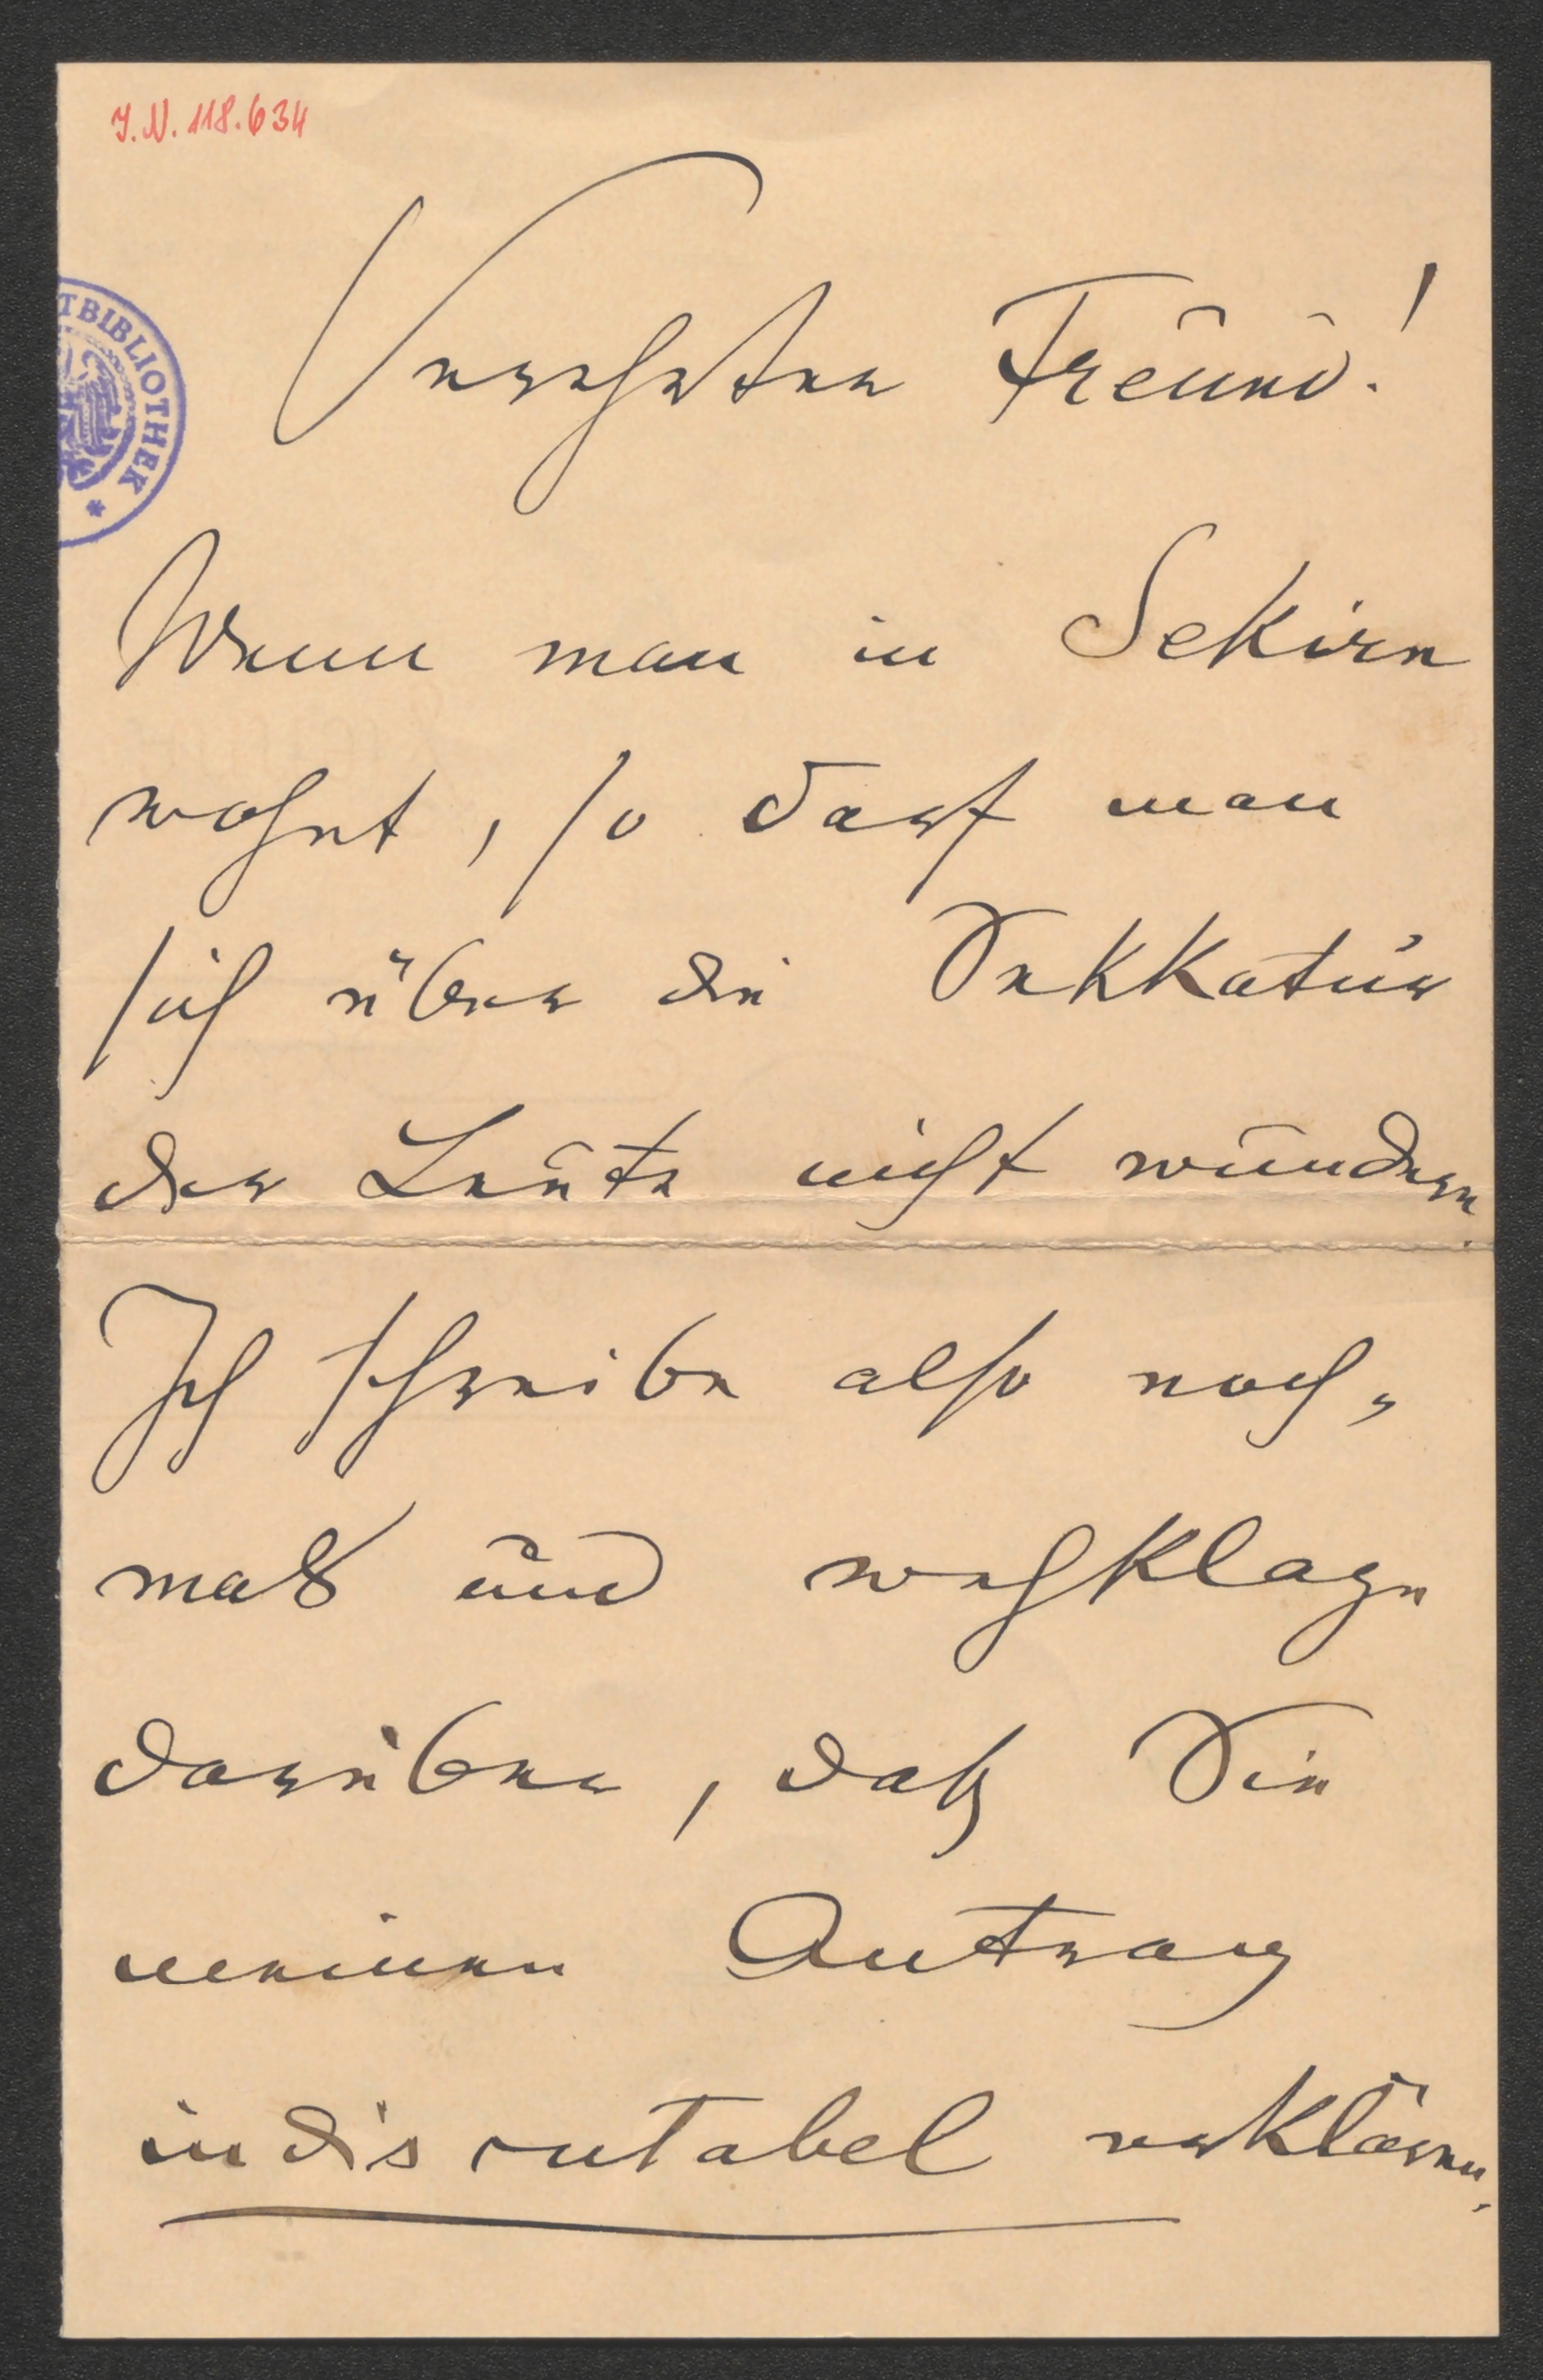 I.N. 118.634
TBIBLIOTHEK
*
Verehrter Freund!
Wenn man in Sekirn
wohnt, so darf man
sich über die Sekkatur
der Leute nicht wundern.
Ich schreibe also noch„
mals und wehklage
darüber, daß Sie
meinen Antrag
indiscutabel erklären,